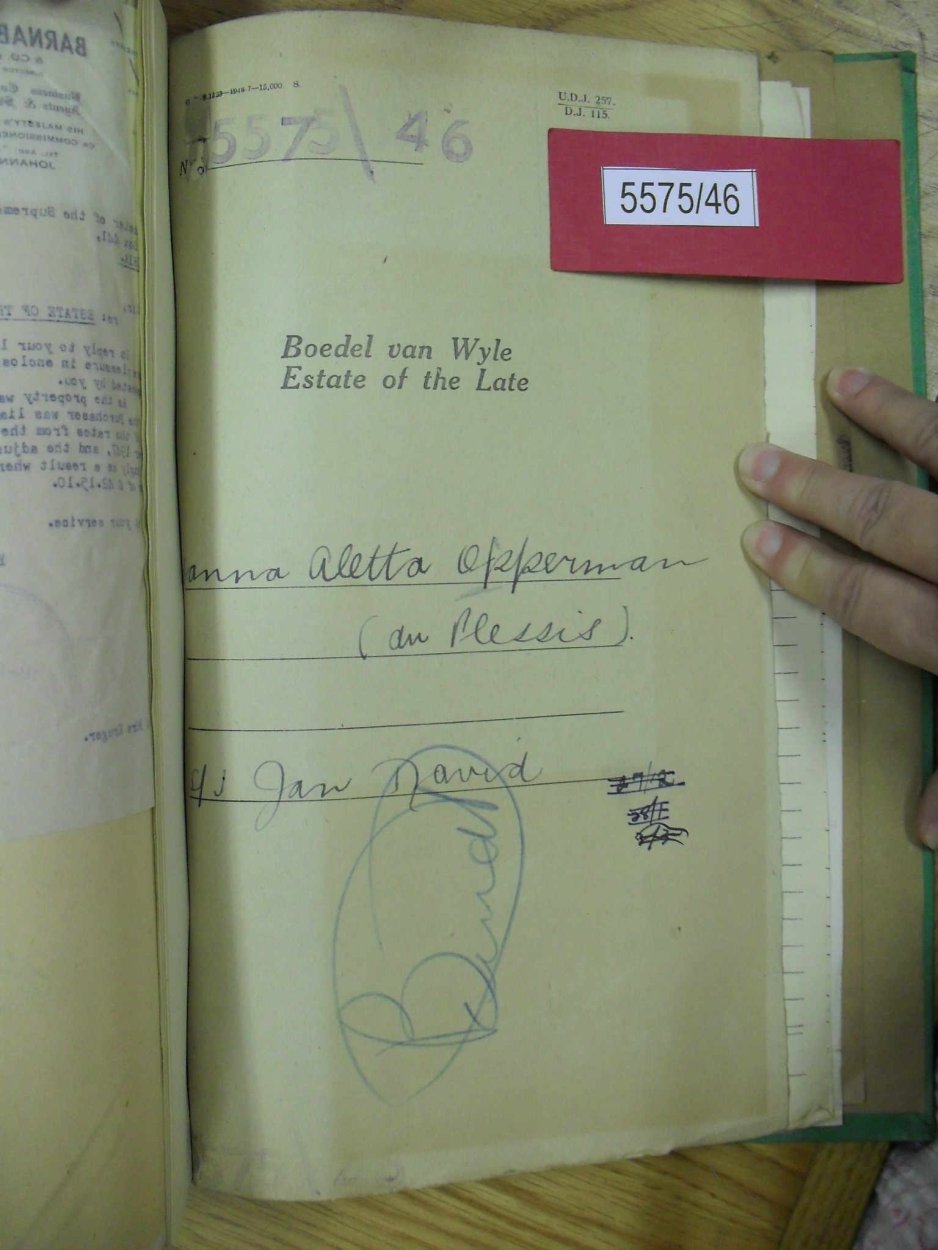 BARNAB
& CO.
HIS MAJESTY'S
JOHANN
the Supreme
re: ESTATE OF TH
reply to your l
pleasure in enclos
by you.
the property wa
Purchaser was lia
rates from the
1947, and the adju
as a result where
of £42.15.10.
your service.
Mrs Kruger.
—1946-7—15,000 S.
U.D.J. 257.
D.J. 115.
No 5575/46
5575/46
Boedel van Wyle
Estate of the Late
anna Aletta Opperman
(du Plessis).
s/s Jan David
27/2
28/1
Bund